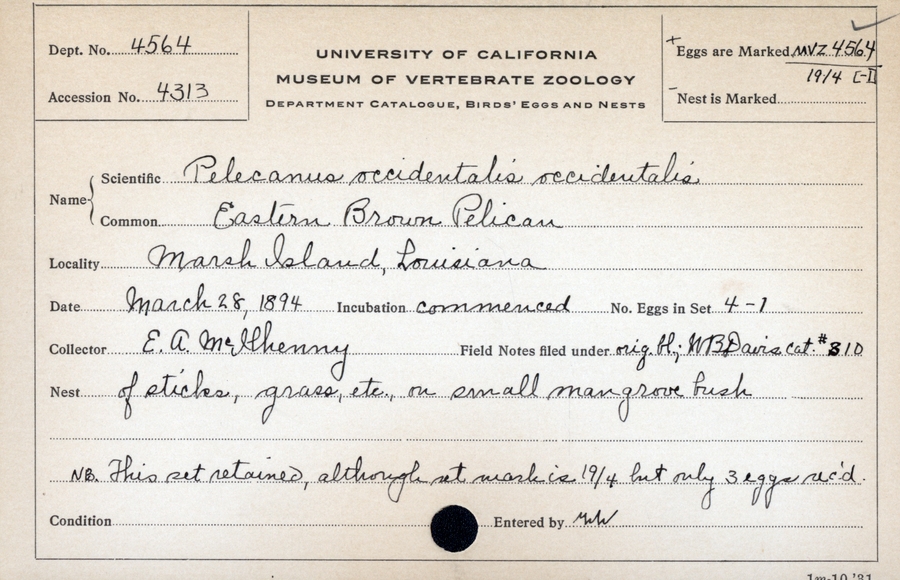 Dept. No. 4564
Accession No. 4313
UNIVERSITY OF CALIFORNIA
MUSEUM OF VERTEBRATE ZOOLOGY
DEPARTMENT CATALOGUE, BIRDS' EGGS AND NESTS
+ Eggs are Marked MVZ 4564
19/4 [-1]
- Nest is Marked
Name
Scientific Pelecanus occidentalis occidentalis
Common Eastern Brown Pelican
Locality Marsh Island, Louisiana
Date March 28, 1894 Incubation commenced No. Eggs in Set 4-1
Collector E. A. McIlhenny Field Notes filed under orig. bl; WBDavis cat. #310
Nest of sticks, grass, etc., on small mangrove bush
NB. This set retained, although set mark is 19/4 but only 3 eggs rec'd.
Condition Entered by
1m-10,'31